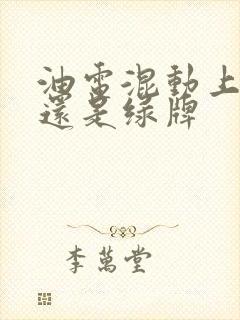 油電混動上
還是綠牌
李萬堂